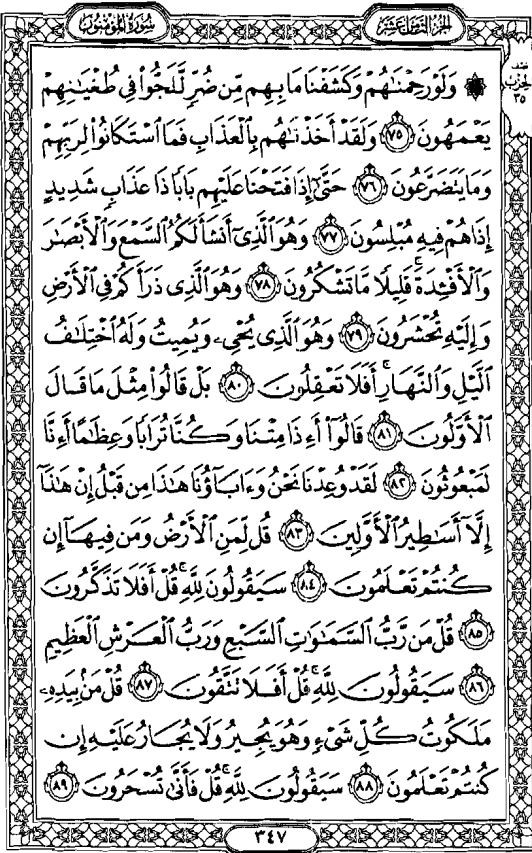 سُورَةُ المُؤْمِنُون
الجُزْءُ الثَّامِنَ عَشَرَ
نصف
الحزب
٣٥
۞ وَلَوْ رَحِمْنَٰهُمْ وَكَشَفْنَا مَا بِهِم مِّن ضُرٍّ لَّلَجُّوا۟ فِى طُغْيَٰنِهِمْ
يَعْمَهُونَ ﴿٧٥﴾ وَلَقَدْ أَخَذْنَٰهُم بِٱلْعَذَابِ فَمَا ٱسْتَكَانُوا۟ لِرَبِّهِمْ
وَمَا يَتَضَرَّعُونَ ﴿٧٦﴾ حَتَّىٰٓ إِذَا فَتَحْنَا عَلَيْهِم بَابًا ذَا عَذَابٍ شَدِيدٍ
إِذَا هُمْ فِيهِ مُبْلِسُونَ ﴿٧٧﴾ وَهُوَ ٱلَّذِىٓ أَنشَأَ لَكُمُ ٱلسَّمْعَ وَٱلْأَبْصَٰرَ
وَٱلْأَفْـِٔدَةَ ۚ قَلِيلًا مَّا تَشْكُرُونَ ﴿٧٨﴾ وَهُوَ ٱلَّذِى ذَرَأَكُمْ فِى ٱلْأَرْضِ
وَإِلَيْهِ تُحْشَرُونَ ﴿٧٩﴾ وَهُوَ ٱلَّذِى يُحْىِۦ وَيُمِيتُ وَلَهُ ٱخْتِلَٰفُ
ٱلَّيْلِ وَٱلنَّهَارِ ۚ أَفَلَا تَعْقِلُونَ ﴿٨٠﴾ بَلْ قَالُوا۟ مِثْلَ مَا قَالَ
ٱلْأَوَّلُونَ ﴿٨١﴾ قَالُوٓا۟ أَءِذَا مِتْنَا وَكُنَّا تُرَابًا وَعِظَٰمًا أَءِنَّا
لَمَبْعُوثُونَ ﴿٨٢﴾ لَقَدْ وُعِدْنَا نَحْنُ وَءَابَآؤُنَا هَٰذَا مِن قَبْلُ إِنْ هَٰذَآ
إِلَّآ أَسَٰطِيرُ ٱلْأَوَّلِينَ ﴿٨٣﴾ قُل لِّمَنِ ٱلْأَرْضُ وَمَن فِيهَآ إِن
كُنتُمْ تَعْلَمُونَ ﴿٨٤﴾ سَيَقُولُونَ لِلَّهِ ۚ قُلْ أَفَلَا تَذَكَّرُونَ
﴿٨٥﴾ قُلْ مَن رَّبُّ ٱلسَّمَٰوَٰتِ ٱلسَّبْعِ وَرَبُّ ٱلْعَرْشِ ٱلْعَظِيمِ
﴿٨٦﴾ سَيَقُولُونَ لِلَّهِ ۚ قُلْ أَفَلَا تَتَّقُونَ ﴿٨٧﴾ قُلْ مَنۢ بِيَدِهِۦ
مَلَكُوتُ كُلِّ شَىْءٍ وَهُوَ يُجِيرُ وَلَا يُجَارُ عَلَيْهِ إِن
كُنتُمْ تَعْلَمُونَ ﴿٨٨﴾ سَيَقُولُونَ لِلَّهِ ۚ قُلْ فَأَنَّىٰ تُسْحَرُونَ ﴿٨٩﴾
٣٤٧